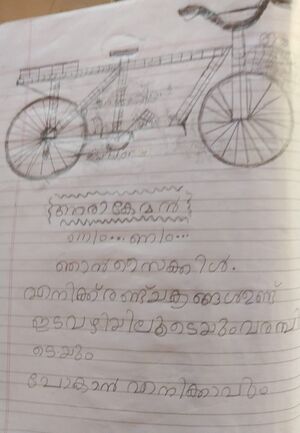 ഞാരാകേമൻ
ണിം... ണിം...
ഞാൻ സൈക്കിൾ.
എനിക്ക് രണ്ട് ചക്രങ്ങൾ ഉണ്ട്
ഇടവഴിയിലൂടെയും വരമ്പി
ടെയും
പോകാൻ എനിക്കാവും